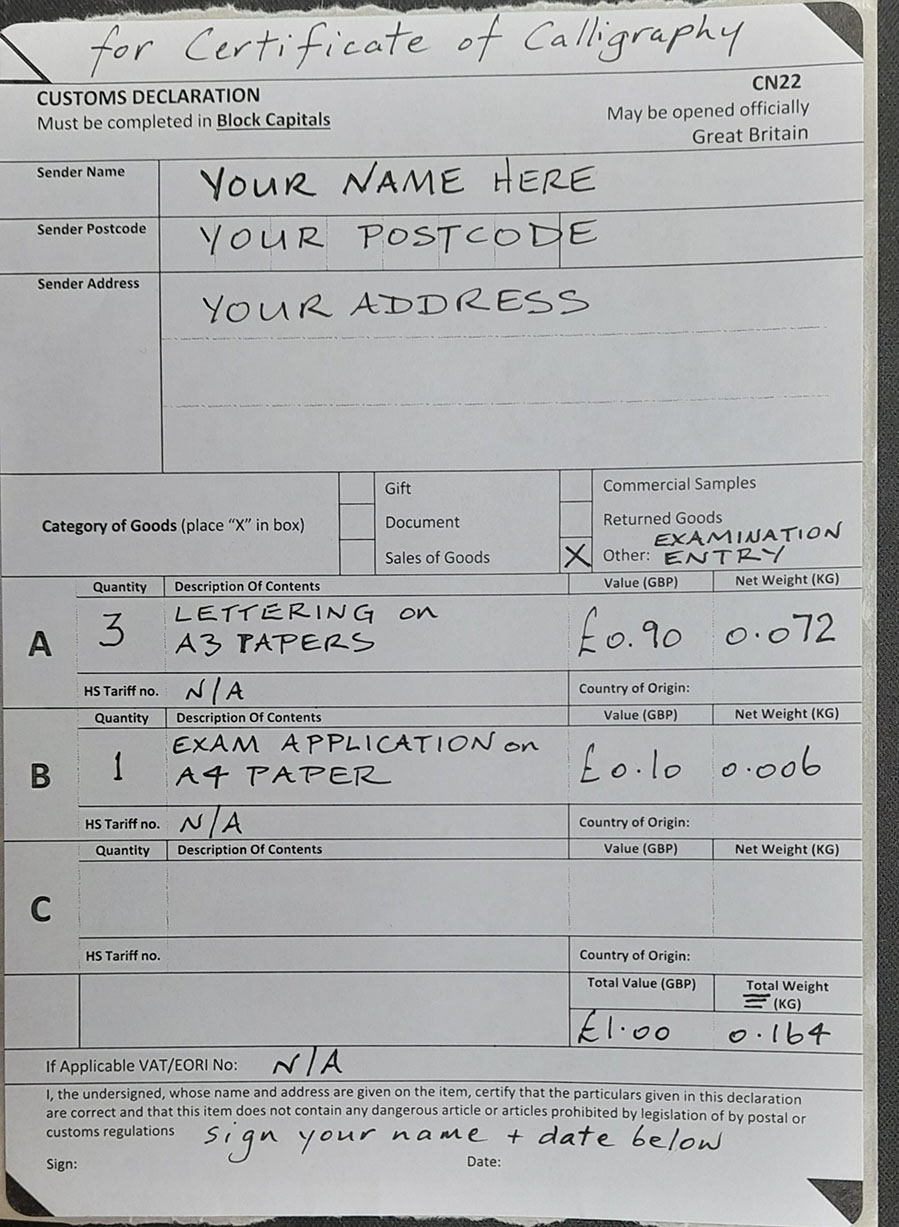 for Certificate of Calligraphy
CUSTOMS DECLARATION
CN22
Must be completed in Block Capitals
May be opened officially
Great Britain
Sender Name
YOUR NAME HERE
Sender Postcode
YOUR POSTCODE
Sender Address
YOUR ADDRESS
Category of Goods (place “X” in box)
Gift
Document
Sales of Goods
Commercial Samples
Returned Goods
X Other: EXAMINATION
ENTRY
A
Quantity Description Of Contents Value (GBP) Net Weight (KG)
3 LETTERING on
A3 PAPERS
£0.90 0.072
HS Tariff no. N/A Country of Origin:
B
Quantity Description Of Contents Value (GBP) Net Weight (KG)
1 EXAM APPLICATION on
A4 PAPER
£0.10 0.006
HS Tariff no. N/A Country of Origin:
C
Quantity Description Of Contents Value (GBP) Net Weight (KG)
HS Tariff no. Country of Origin:
Total Value (GBP) Total Weight
(KG)
£1.00 0.164
If Applicable VAT/EORI No: N/A
I, the undersigned, whose name and address are given on the item, certify that the particulars given in this declaration
are correct and that this item does not contain any dangerous article or articles prohibited by legislation of by postal or
customs regulations sign your name + date below
Sign: Date: